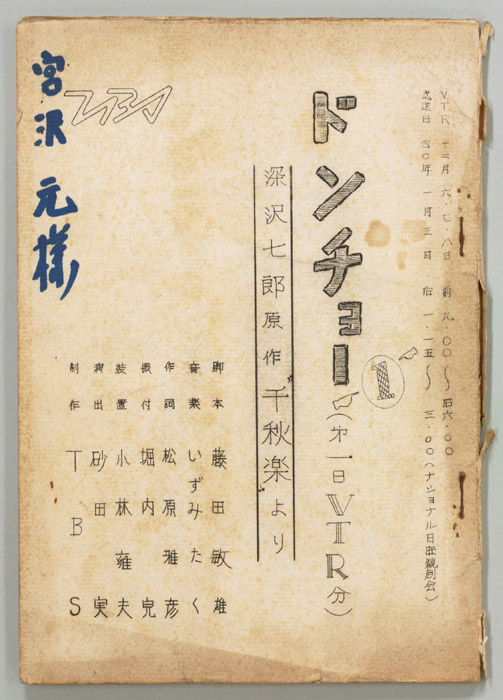 VTR 十二月 六・七・八日 前九・〇〇〜后六・〇〇
放送日 四〇年 一月 三日 后一・一五〜三・〇〇(ナショナル日曜観劇会)
ドンチョー(第一日VTR分)
1
深沢七郎原作 千秋楽より
脚本 藤田敏雄
音楽 いずみたく
作詞 松原雅彦
振付 堀内完
装置 小林雍夫
演出 砂田実
制作 TBS
TBS
宮沢元様